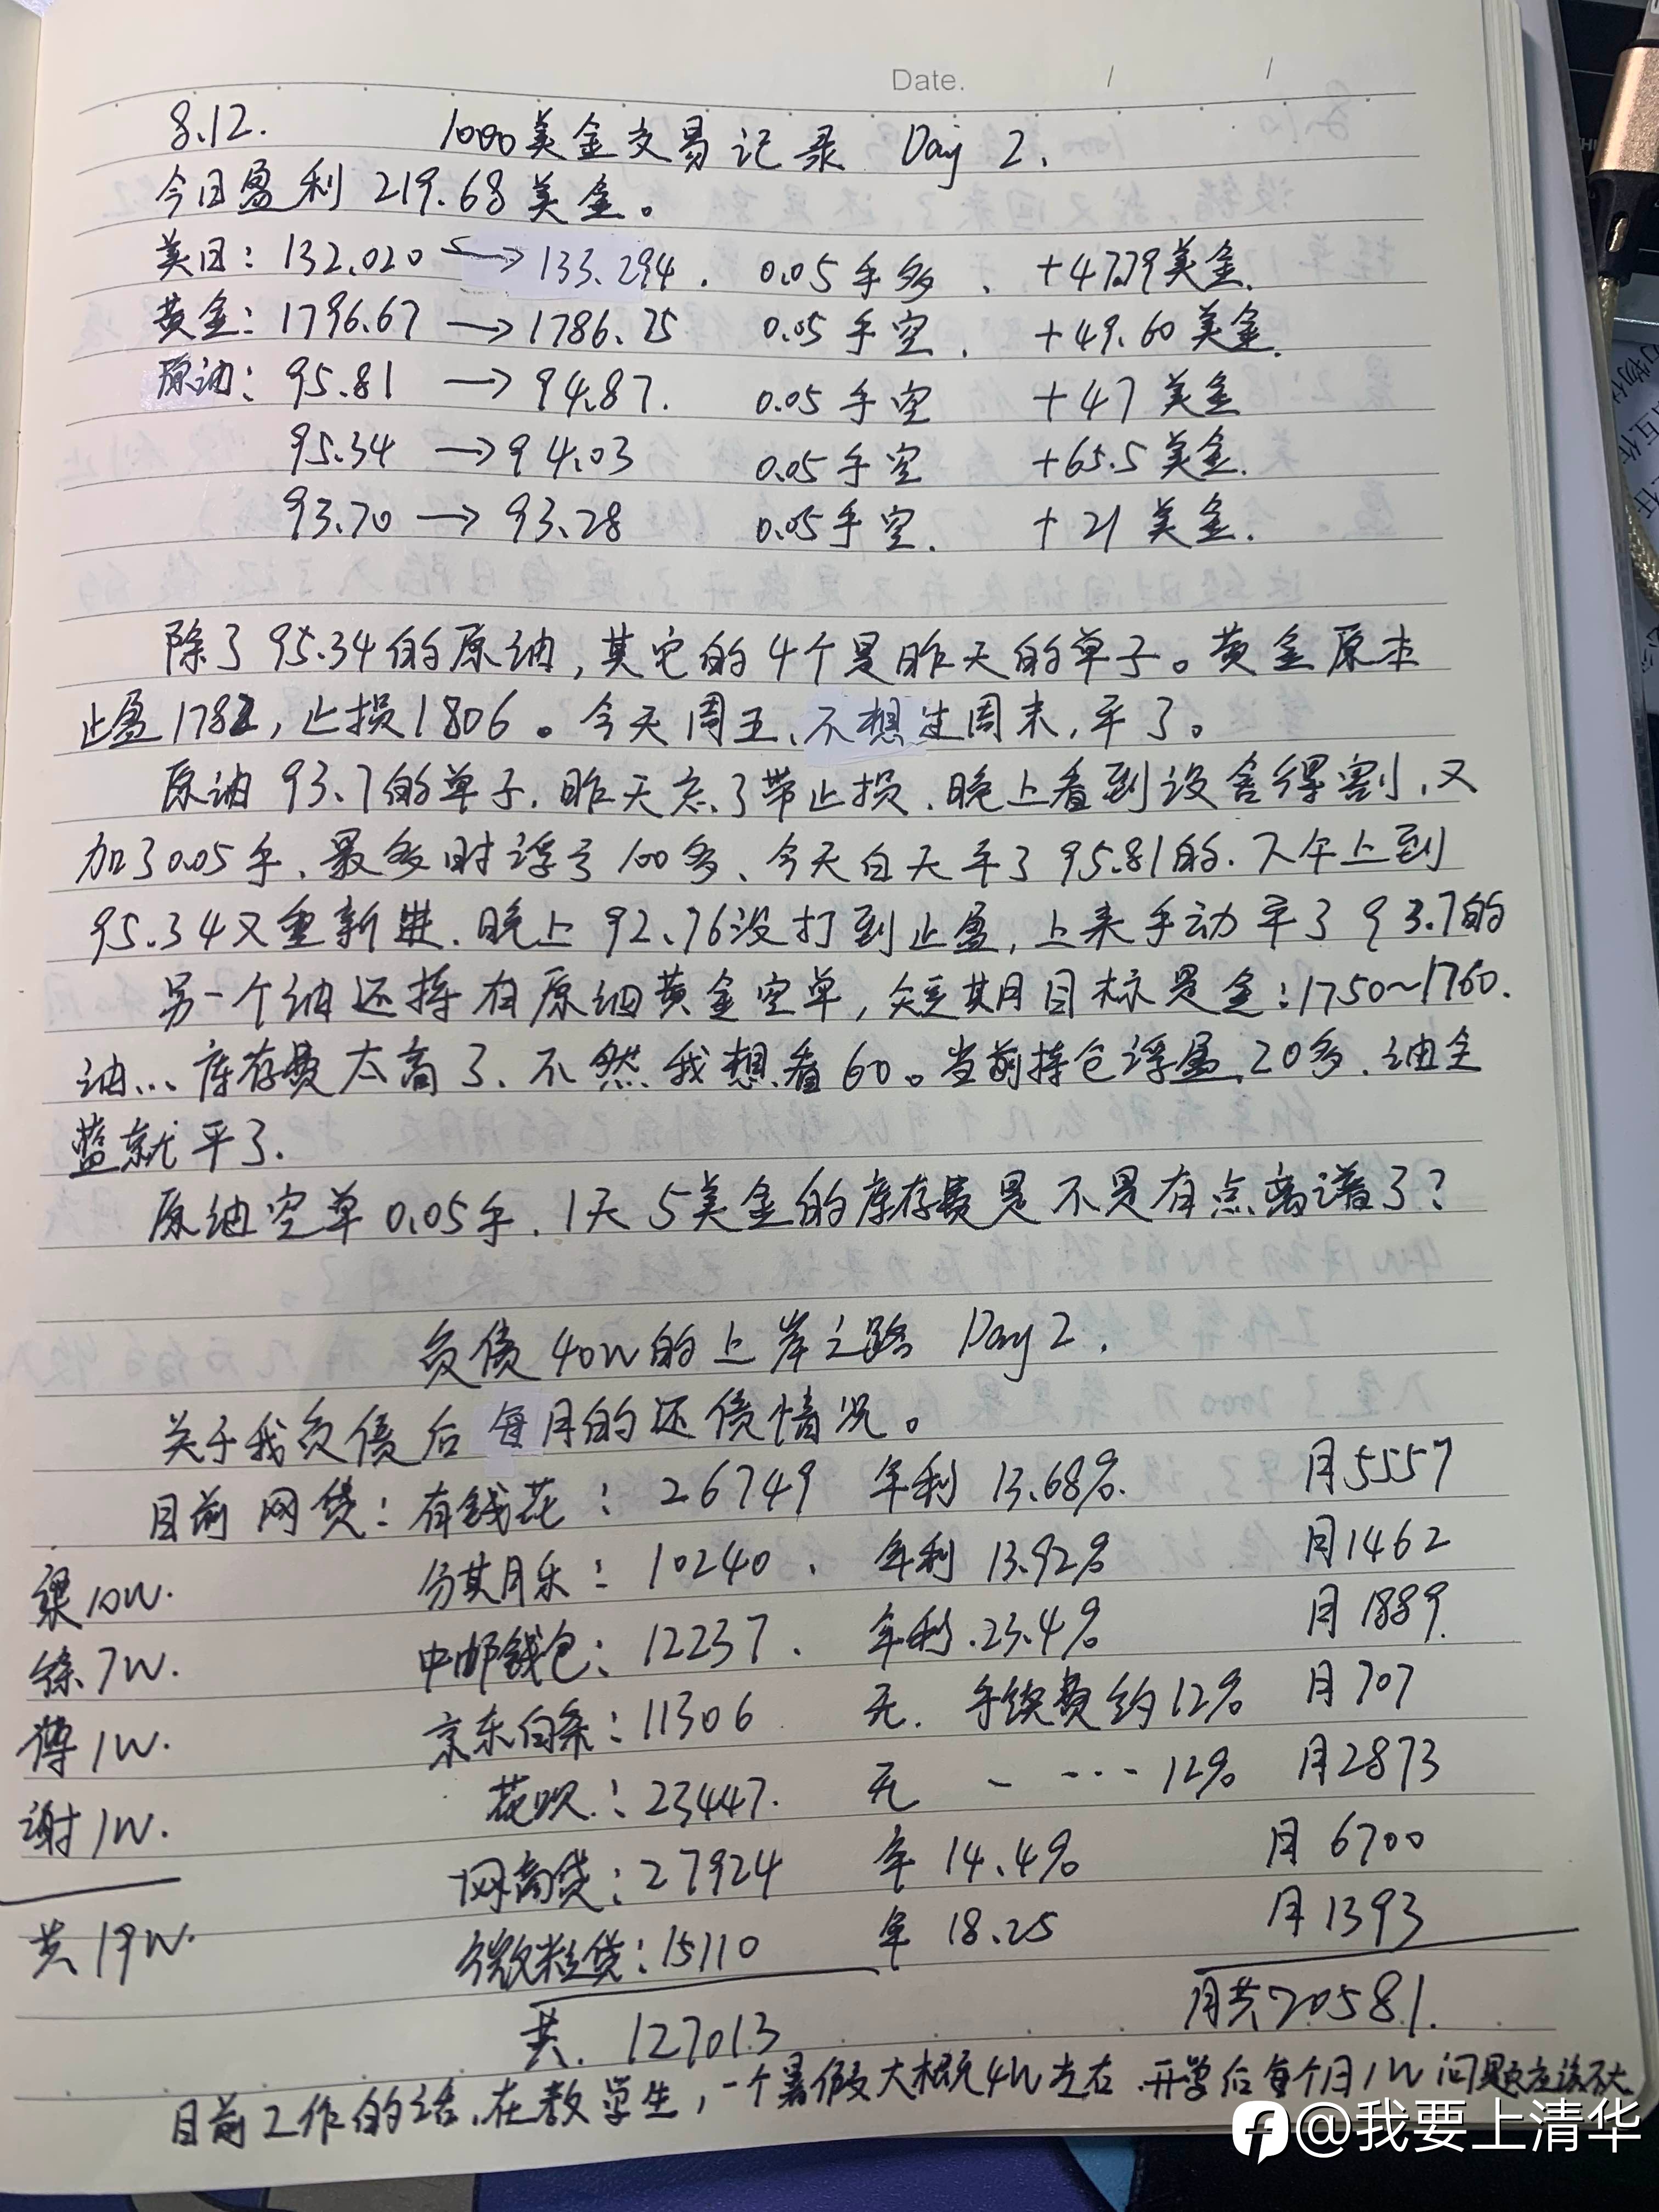 Date. / /
8.12. 1000美金交易记录 Day 2.
今日盈利 219.68 美金。
美日: 132.020 → 133.294. 0.05手多、 +47.79美金.
黄金: 1796.67 → 1786.75 0.05手空. +49.60美金.
原油: 95.81 → 94.87. 0.05手空 +47美金
95.34 → 94.03 0.05手空 +65.5美金.
93.70 → 93.28 0.05手空. +21美金.
除了95.34的原油,其它的4个是昨天的单子。黄金原本
止盈1782,止损1806。今天周五、不想过周末,平了。
原油93.7的单子.昨天忘了带止损.晚上看到没舍得割,又
加了0.05手、最多时浮亏100多、今天白天平了95.81的.下午上到
95.34又重新进.晚上92.76没打到止盈,上来手动平了93.7的
另一个油还持有原油黄金空单,短期目标是金:1750~1760.
油...库存费太高了、不然我想看60。当前持仓浮盈20多.油全
蓝就平了.
原油空单0.05手.1天5美金的库存费是不是有点离谱了?
负债40W的上岸之路 Day 2.
关于我负债后每月的还债情况。
目前网贷: 有钱花: 26749 年利 13.68%. 月5557
梁10W. 分期乐: 10240. 年利 13.92% 月1462
徐7W. 中邮钱包: 12237. 年利.23.4% 月1889.
傅1W. 京东白条: 11306 无. 手续费约12% 月707
谢1W. 花呗.: 23447. 无 - ··· 12% 月2873
网商贷: 27924 年 14.4% 月6700
共19W. 微粒贷: 15110 年 18.25 月1393
共. 127013 月共20581.
目前工作的话.在教学生,一个暑假大概4W左右.开学后每个月1W问题应该不大.
@我要上清华